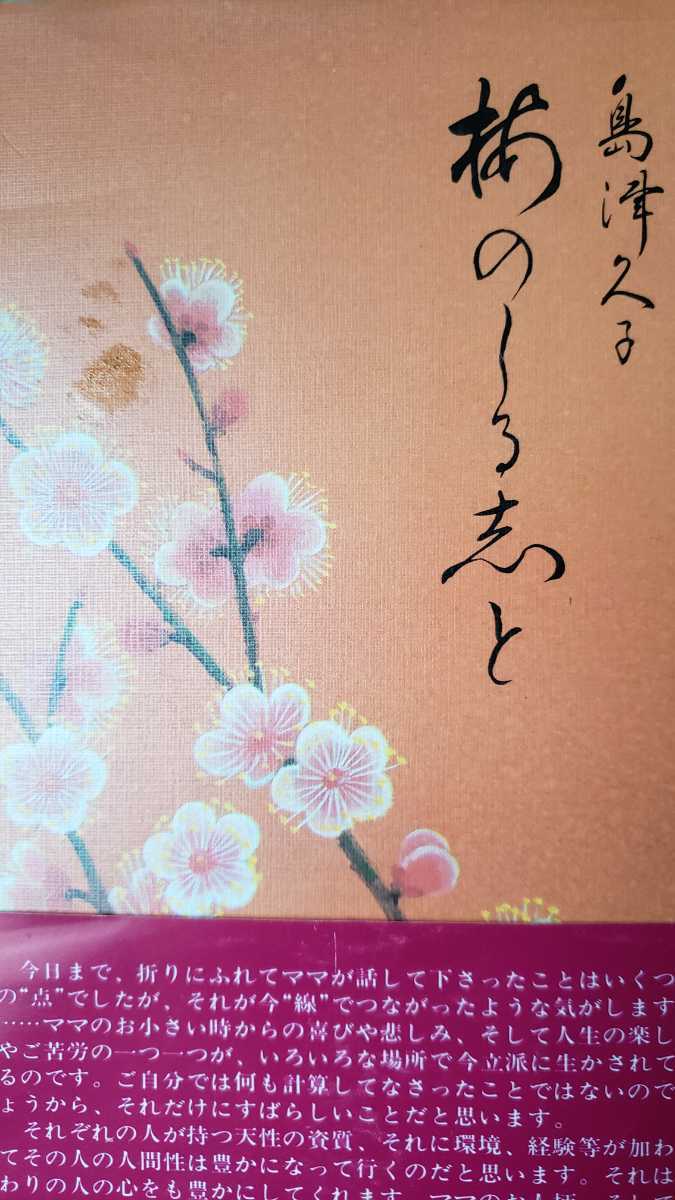 島津久子
梅のしる志と
今日まで、折りにふれてママが話して下さったことはいくつ
の“点”でしたが、それが今“線”でつながったような気がします
……ママのお小さい時からの喜びや悲しみ、そして人生の楽し
やご苦労の一つ一つが、いろいろな場所で今立派に生かされて
るのです。ご自分では何も計算してなさったことではないので
ょうから、それだけにすばらしいことだと思います。
それぞれの人が持つ天性の資質、それに環境、経験等が加わ
てその人の人間性は豊かになって行くのだと思います。それは
わりの人の心をも豊かにしてくれます。ママの